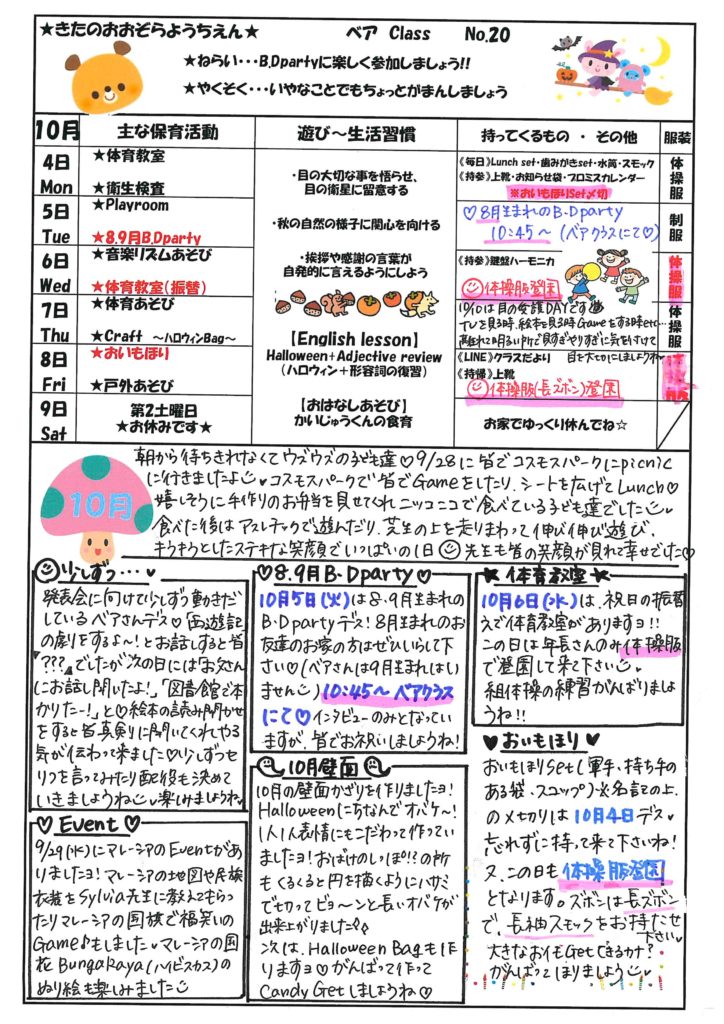 ★きたのおおぞらようちえん★
ベア Class No.20
★ねらい・・・B.Dpartyに楽しく参加しましょう!!
★やくそく・・・いやなことでもちょっとがまんしましょう
10月 主な保育活動 遊び～生活習慣 持ってくるもの ・ その他 服装
4日 Mon
★体育教室
★衛生検査
5日 Tue
★Playroom
★8.9月B.Dparty
6日 Wed
★音楽リズムあそび
★体育教室(振替)
7日 Thu
★体育あそび
★Craft ～ハロウィンBag～
8日 Fri
★おいもほり
★戸外あそび
9日 Sat
第2土曜日
★お休みです★
・目の大切な事を悟らせ、
目の衛星に留意する
・秋の自然の様子に関心を向ける
・挨拶や感謝の言葉が
自発的に言えるようにしよう
【English lesson】
Halloween+Adjective review
(ハロウィン+形容詞の復習)
【おはなしあそび】
かいじゅうくんの食育
《毎日》Lunch set・歯みがきset・水筒・スモック
《持参》上靴・お知らせ袋・プロミスカレンダー
※おいもほりSet〆切
♡8月生まれのB・Dparty
10:45～(ベアクラスにて♡)
《持参》鍵盤ハーモニカ
体操服登園
10/10は目の愛護DAYです
TVを見る時、絵本を見る時Gameをする時etc…
離れて明るい所で見すぎやりすぎに気を付けて
《LINE》クラスだより 目を大切にしましょうね
《持帰》上靴
体操服(長ズボン)登園
お家でゆっくり休んでね☆
体操服
制服
体操服
体操服
10月
朝から待ちきれなくてウズウズの子ども達♡9/28に皆でコスモスパークにpicnic
に行きましたよ♡コスモスパークで皆でGameをしたり、シートを広げてLunch♡
嬉しそうに手作りのお弁当を見せてくれニッコニコで食べている子ども達でした
食べた後はアスレチックで遊んだり、芝生の上を走りまわって伸び伸び遊び、
キラキラとしたステキな笑顔でいっぱいの1日 先生も皆の笑顔が見れて幸せでした♡
少しずつ…♥
発表会に向けて少しずつ動きだ
しているベアさんデス♡「西遊記
の劇をするよ～!とお話しすると皆
「???」でしたが次の日には「お父さん
にお話し聞いたよ!」「図書館で本
かりたー!」と♡絵本の読み聞かせ
をすると皆真剣に聞いてくれやる
気が伝わって来ました♡少しずつセ
リフを言ってみたり配役も決めて
いきましょうね 楽しみましょうね
♡ Event ♡
9/29(水)にマレーシアのEventがあ
りましたヨ!マレーシアの地図や民族
衣装をSylvia先生に教えてもらっ
たりマレーシアの国旗で福笑いの
Game♪もしました♥マレーシアの国
花 BungaRaya(ハイビスカス)の
ぬり絵も楽しみました
♡8.9月B・Dparty♡
10月5日(火)は8・9月生まれの
B・Dpartyデス!8月生まれのお
友達のお家の方はぜひいらして下
さい♡(ベアさんは9月生まれはい
ません)10:45～ベアクラス
にて♡インタビューのみとなってい
ますが、皆でお祝いしましょうね!
10月壁面
10月の壁面かざりを作りましたヨ!
Halloweenにちなんでオバケ～!
1人1人表情にもこだわって作ってい
ましたヨ!おばけのしっぽ!?の所
もくるくると円を描くようにハサミ
で切ってビョ～ンと長いオバケが
出来上がりました
次は、Halloween Bagも作
りますヨ♡がんばって作って
Candy Getしましょうね♡
★ 体育教室 ★
10月6日(水)は、祝日の振替
えで体育教室がありますヨ!!
この日は年長さんのみ体操服
で登園して来て下さい
組体操の練習がんばりましょ
うね!!
♥おいもほり
おいもほりSet(軍手、持ち手の
ある袋、スコップ)※名記の上.
の〆切りは10月4日デス♥
忘れずに持って来て下さいね!
又、この日も体操服登園
となります。ズボンは長ズボン
で、長袖スモックをお持たせ
下さい♥
大きなおイモGetできるカナ?
がんばってほりましょう